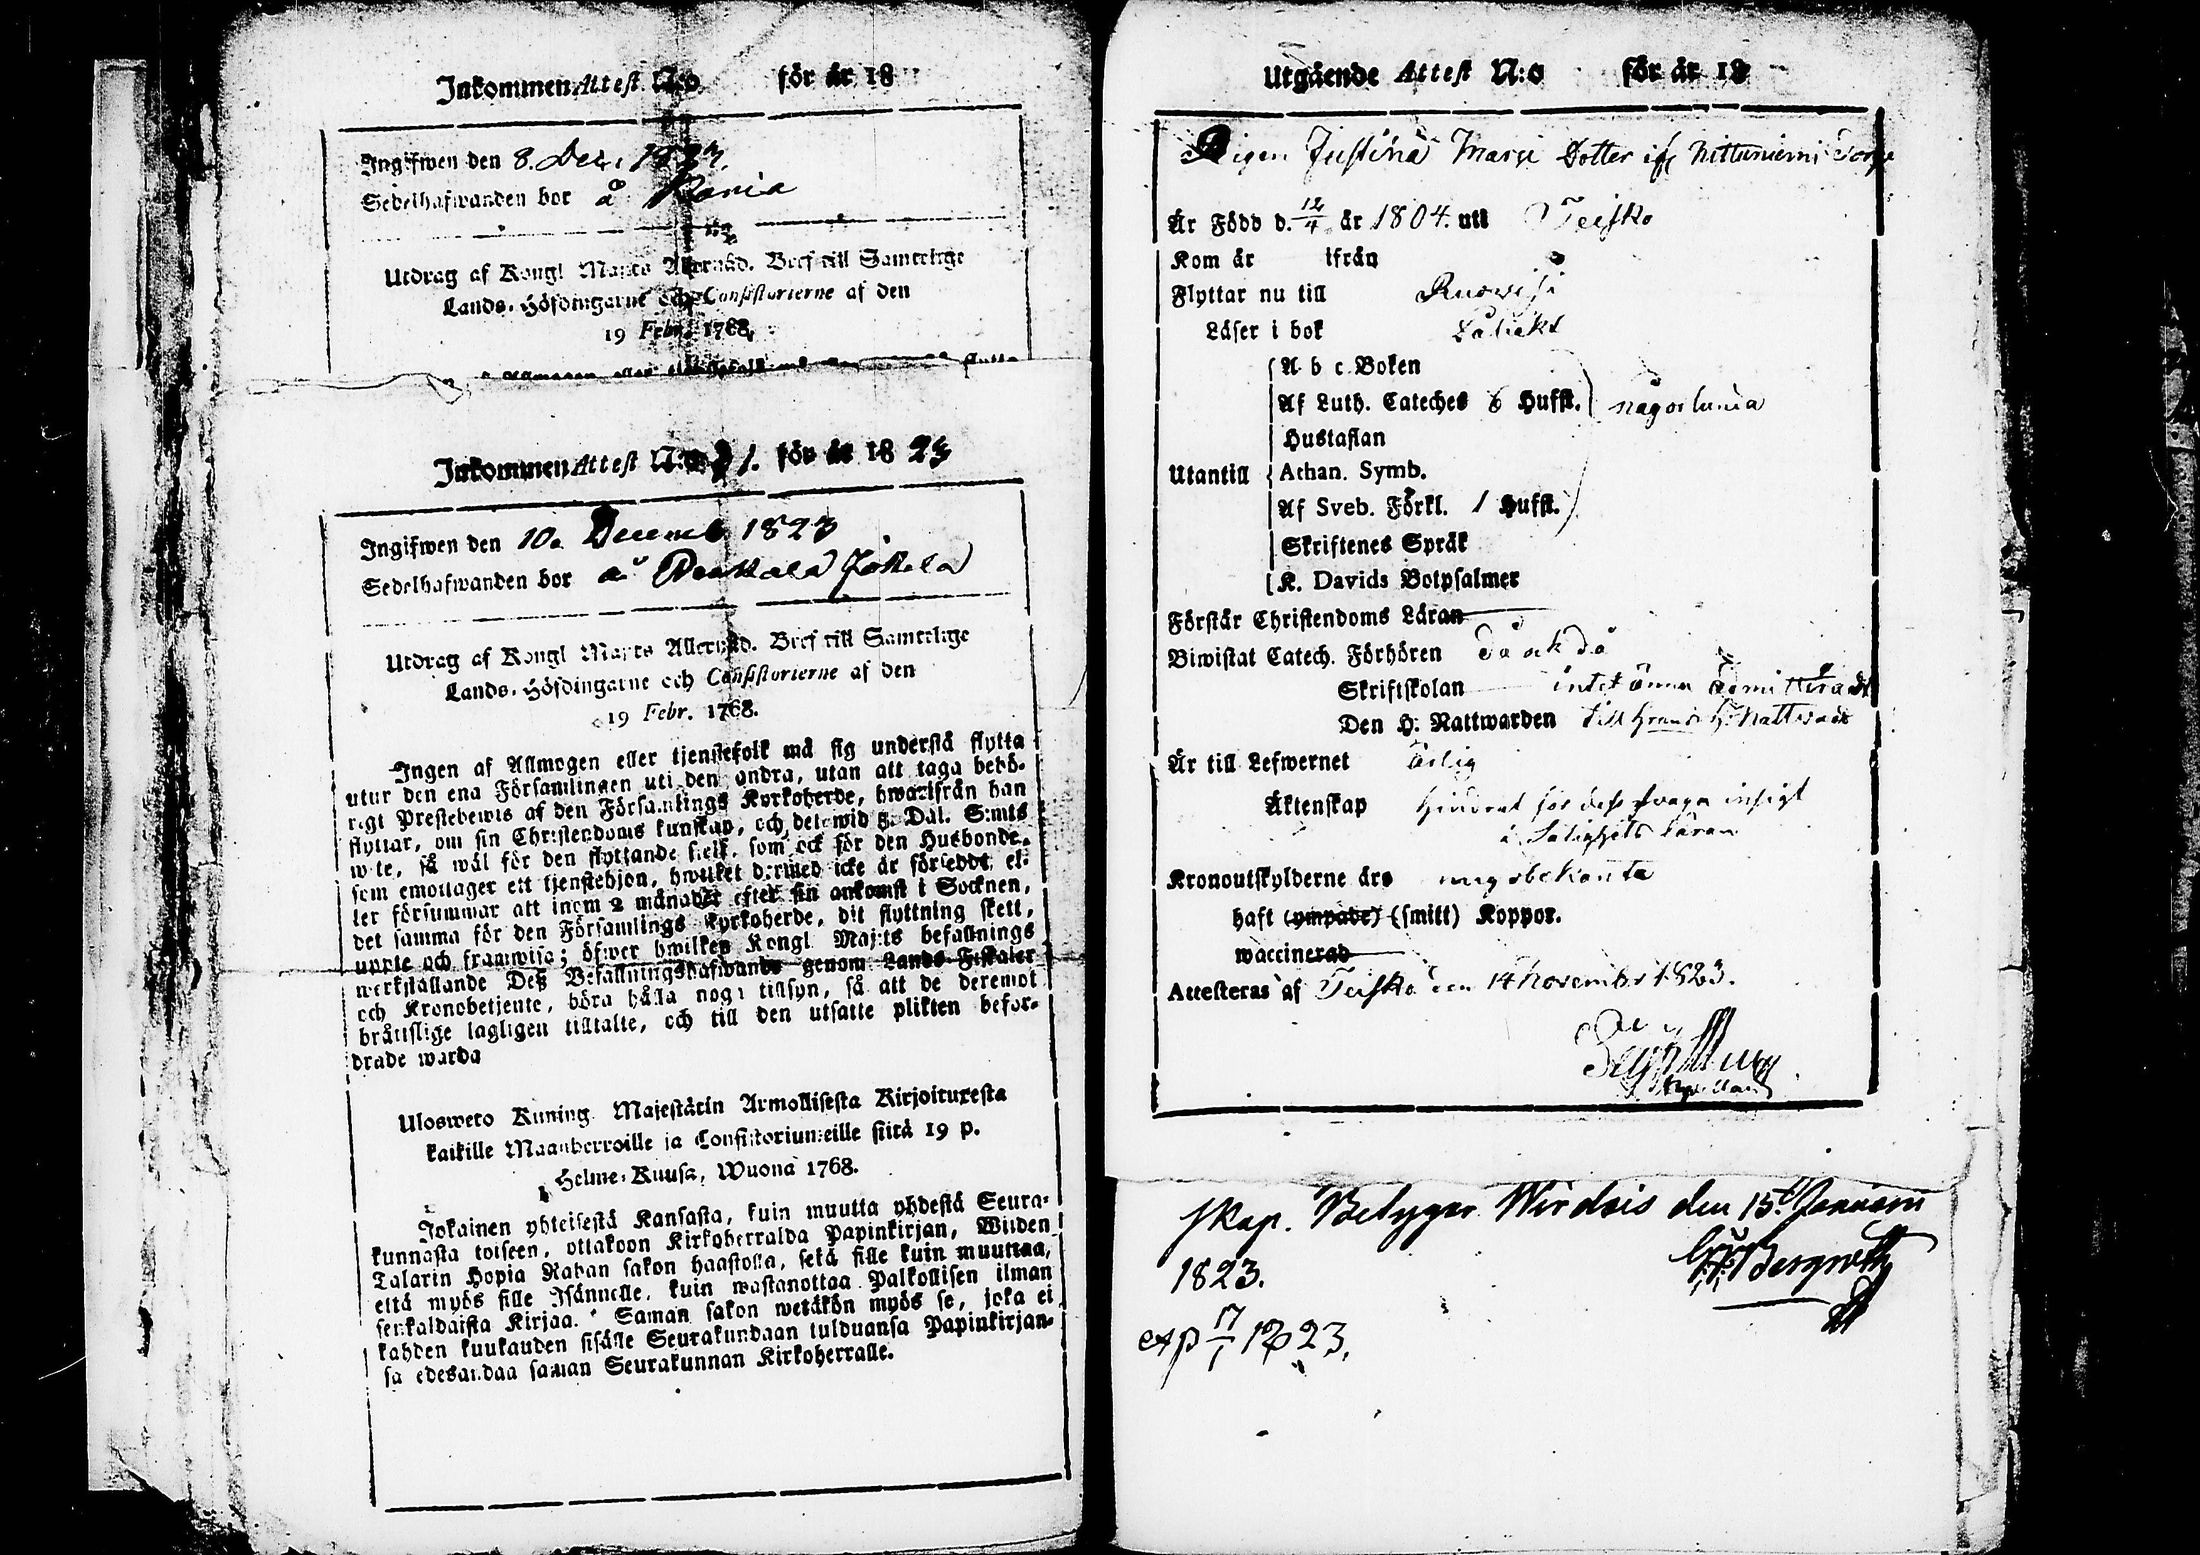 Inkommen Attest N:o för år 18
Ingifwen den 8. Dec. 1823.
Sedelhafwanden bor å Rania
Utdrag af Kongl Maj:ts Allernåd. Bref till Samtelige
Lands-Höfdingarne och Consistorierne af den
19 Febr. 1768.
Inkommen Attest N:o 31. för år 1823
Ingifwen den 10. Decemb. 1823
Sedelhafwanden bor å Jokela
Utdrag af Kongl Maj:ts Allernåd. Bref till Samtelige
Lands-Höfdingarne och Consistorierne af den
19 Febr. 1768.
Ingen af Allmogen eller tjenstefolk må sig understå flytta
utur den ena Församlingen uti den andra, utan att taga behö-
rigt Prestebewis af den Församlings Kyrkoherde, hwarifrån han
flyttar, om sin Christendoms kunskap, och det wid 3. Dal. S:mts
wite, så wäl för den flyttande sielf, som ock för den Husbonde,
som emottager ett tjenstehjon, hwilket dermed icke är försedt, el-
ler försummar att inom 2 månader efter sin ankomst i Socknen,
det samma för den Församlings Kyrkoherde, dit flyttning skett,
uppte och framwisa; öfwer hwilken Kongl Maj:ts befallnings
werkställande Deß Befallningshafwande genom Lands Fiskaler
och Kronobetjente, böra hålla noga tillsyn, så att de deremot
bråttslige lagligen tilltalte, och till den utsatte plikten befor-
drade warda
Ulosweto Kuning. Majestätin Armollisesta Kirjoituxesta
kaikille Maanherroille ja Consistoriumeille siitä 19 p.
Helme-Kuusa, Wuona 1768.
Jokainen yhteisestä Kansasta, kuin muutta yhdestä Seura-
kunnasta toiseen, ottakoon Kirkoherralda Papinkirjan, Wiiden
Talarin Hopia Rahan sakon haastolla, sekä sille kuin muuttaa,
että myös sille Isännelle, kuin wastanottaa Palkollisen ilman
senkaldaista Kirjaa. Saman sakon wetäkön myös se, joka ei
kahden kuukauden sisälle Seurakundaan tulduansa Papinkirjan-
sa edesandaa saman Seurakunnan Kirkoherralle.
Utgående Attest N:o för år 18
Pigan Justina Marge Dotter ifr
Är Född d. 12/4 år 1804. uti Teisko
Kom år ifrån
Flyttar nu till Ruowesi
Läser i bok
A b c Boken
Af Luth. Cateches 6 Hufst. någorlunda
Hustaflan
Utantill Athan. Symb.
Af Sveb. Förkl. 1 Hufst.
Skriftenes Språk
K. Davids Botpsalmer
Förstår Christendoms Läran
Biwistat Catech. Förhören då ock då
Skriftskolan intet ännu admitterad
Den H. Nattwarden till H. Nattward
Är till Lefwernet ärlig
Äktenskap Hindrat för dess swaga insigt
i Salighets Läran
Kronoutskylderne äro mig obekanta
haft (ympade) (smitt) Koppor.
waccinerad
Attesteras af Teisko den 14 November 1823.
skap. Betygar Wirdois den 15 Januarii
1823.
exp 17/1 1823.